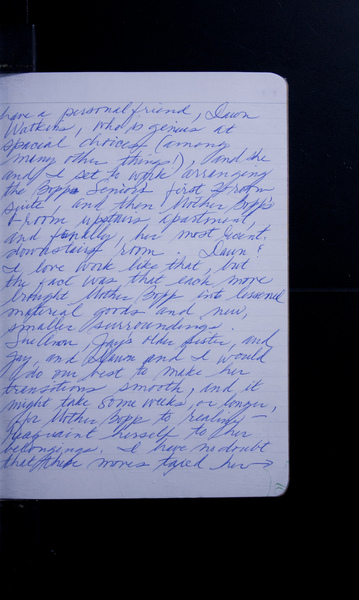 have a personal friend, Dawn
Watkins, who is genius at
spacial choices (among
many other things!), and she
and I set to work arranging
the Bopp Seniors first 3 room
suite, and then Mother Bopp's
room upstairs apartment,
and finally, her most recent
downstairs room. Dawn &
I love work like that, but
the fact was that each move
brought Mother Bopp into lessened
material goods and new,
smaller surroundings.
Jay's older sister, and
Jay, and Dawn and I would
do our best to make her
transitions smooth, and it
might take some weeks, or longer,
for Mother Bopp to really
reacquaint herself to her
belongings. I have no doubt
that these moves taxed her →